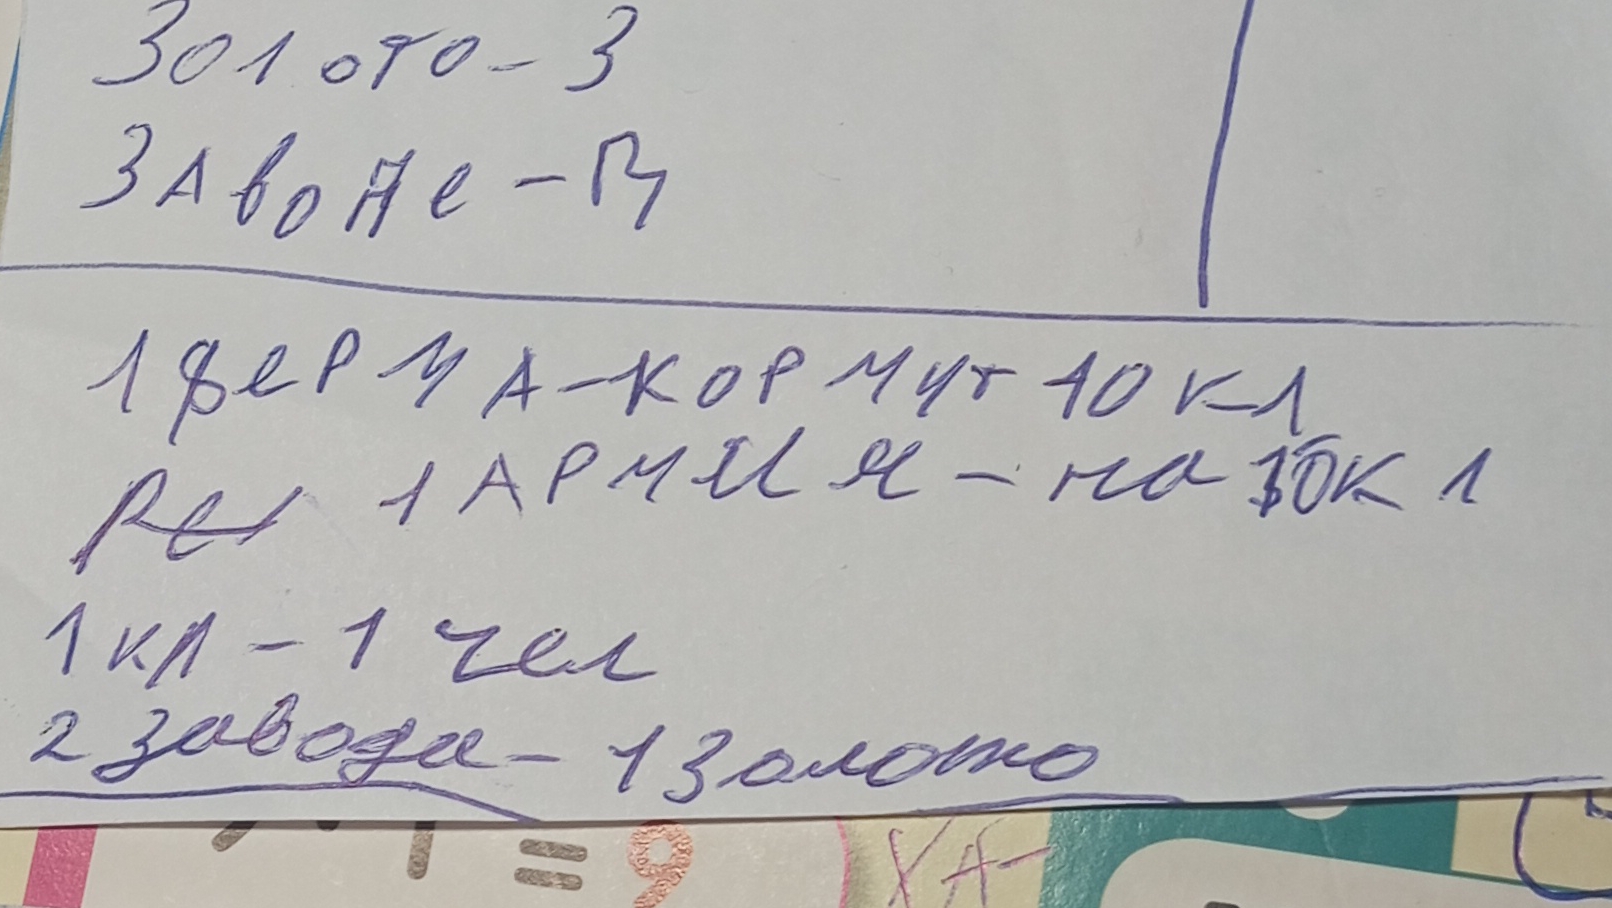 Золото - З
ЗАвоДе - П
1 ферма - кормит 10 кл
1 АРМИЯ - на 10 кл
1 кл - 1 чел
2 завода - 1 золото
= 9
ХА-